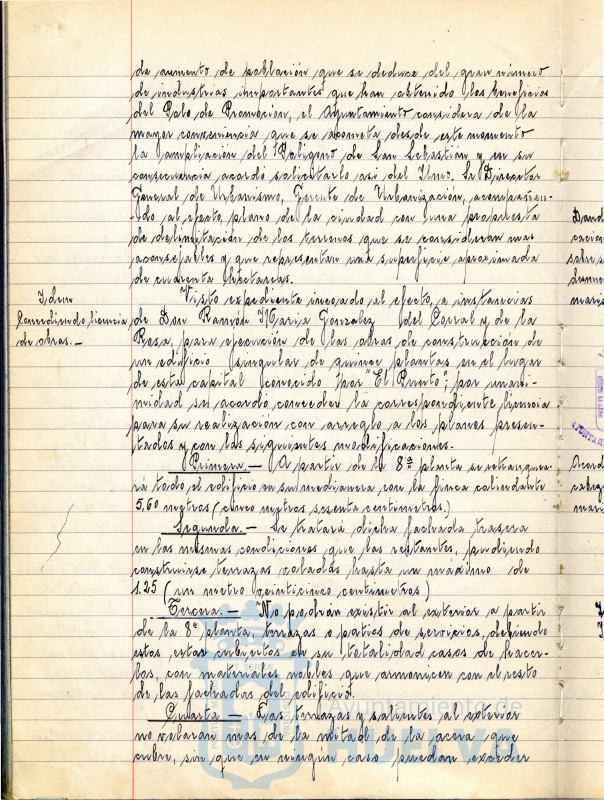 de aumento de población que se deduce del gran número
de industrias importantes que han obtenido los beneficios
del Polo de Promoción, el Ayuntamiento considera de la
mayor conveniencia que se acometa desde este momento
la ampliación del Polígono de San Sebastián y en su
consecuencia acordó solicitarlo así del Ilmo. Sr. Director
General de Urbanismo, Gerente de Urbanización, acompañan-
do al efecto, plano de la ciudad con una propuesta
de delimitación de los terrenos que se consideran mas
aconsejables y que representan una superficie aproximada
de cuarenta Hectáreas.
Idem
Concediendo licencia
de obras.—
Visto expediente incoado al efecto, a instancias
de Don Ramón Maria Gonzalez del Corral y de la
Rosa, para ejecución de las obras de construcción de
un edificio singular de quince plantas en el lugar
de esta capital conocido por "El Punto"; por unani-
midad se acordó conceder la correspondiente licencia
para su realización con arreglo a los planos presen-
tados y con las siguientes modificaciones.
Primera.— A partir de la 8ª planta se retranquea-
rá todo el edificio en su medianera con la finca colindante
5,60 metros (cinco metros sesenta centimetros.)
Segunda.— Se tratará dicha fachada trasera
en las mismas condiciones que las restantes, pudiendo
construirse terrazas voladas hasta un maximo de
1.25 (un metro veinticinco centimetros)
Tercera.— No podrán existir al exterior a partir
de la 8ª planta, terrazas o patios de servicios, debiendo
estos, estar cubiertos en su totalidad casos de hacer-
los, con materiales nobles que armonicen con el resto
de las fachadas del edificio.
Cuarta.— Las terrazas y salientes al exterior
no volaran mas de la mitad de la acera que
cubre, sin que en ningún caso puedan exceder
Ayuntamiento de
HUELVA